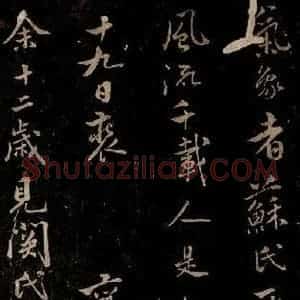 氣象者蘇氏
風流千載人是
十九日裝
余十二歲見關氏
Shutazilia8.COM